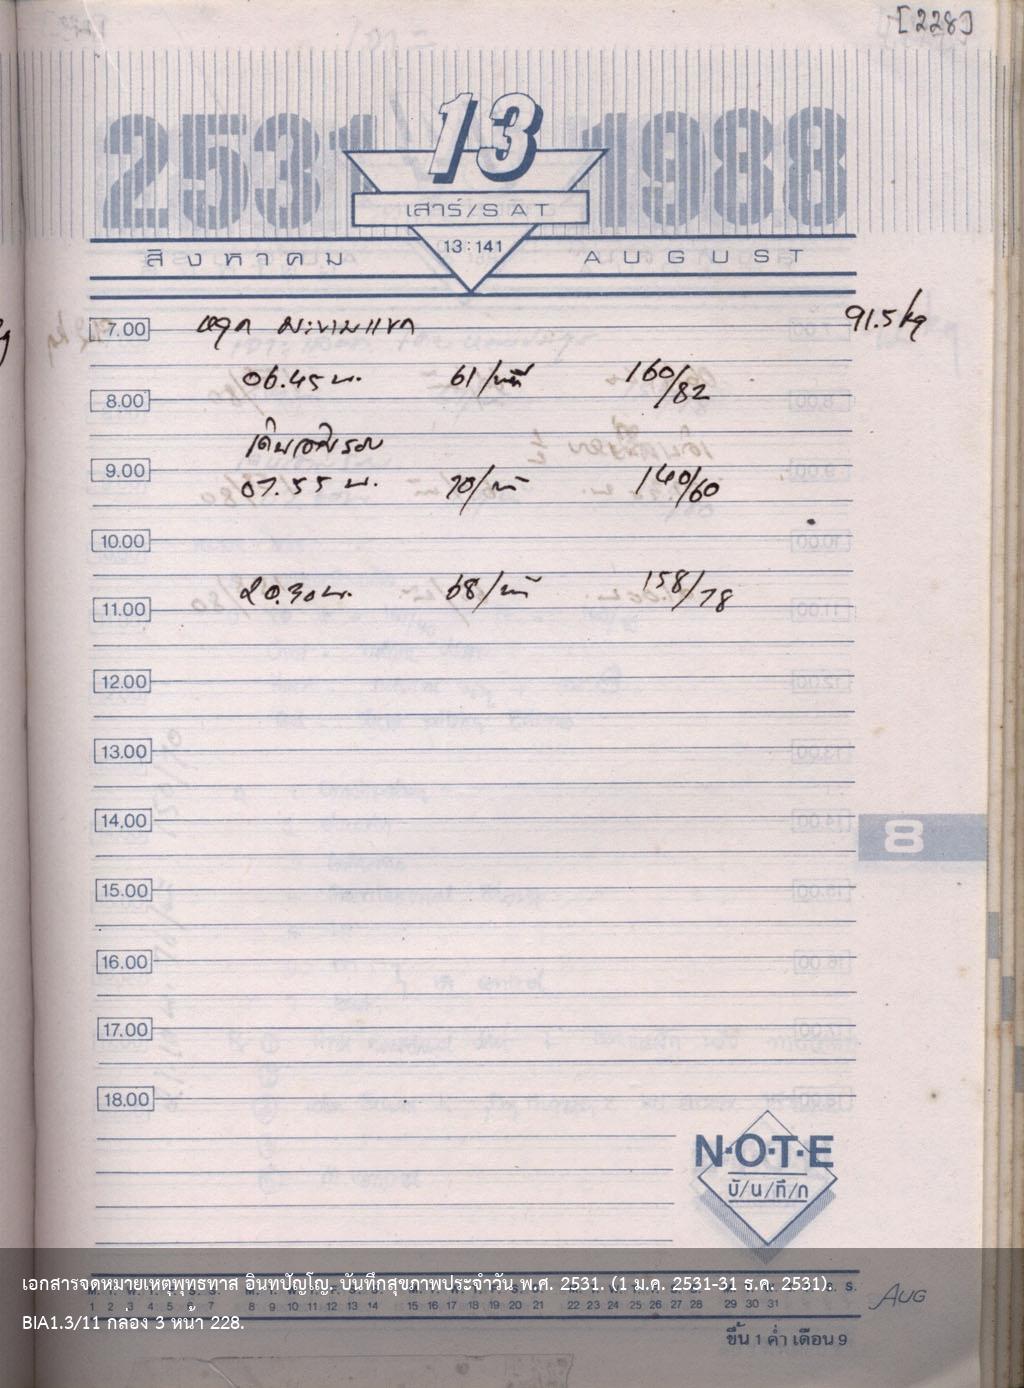 [228]
2531 13 1988
เสาร์/SAT
13:141
สิงหาคม AUGUST
7.00 หยุด มะขามแขก 91.5 kg
06.45 น. 61/นาที 160/82
8.00
เดินรอบ
9.00
07.55 น. 70/นาที 140/60
10.00
20.30 น. 68/นาที 158/78
11.00
12.00
13.00
14.00
8
15.00
16.00
17.00
18.00
N·O·T·E
บั/น/ทึ/ก
เอกสารจดหมายเหตุพุทธทาส อินทปัญโญ. บันทึกสุขภาพประจำวัน พ.ศ. 2531. (1 ม.ค. 2531-31 ธ.ค. 2531).
M. T. W. T. F. S. S.
1 2 3 4 5 6 7 8 9 10 11 12 13 14 15 16 17 18 19 20 21 22 23 24 25 26 27 28 29 30 31
AUG
BIA1.3/11 กล่อง 3 หน้า 228.
ขึ้น 1 ค่ำ เดือน 9